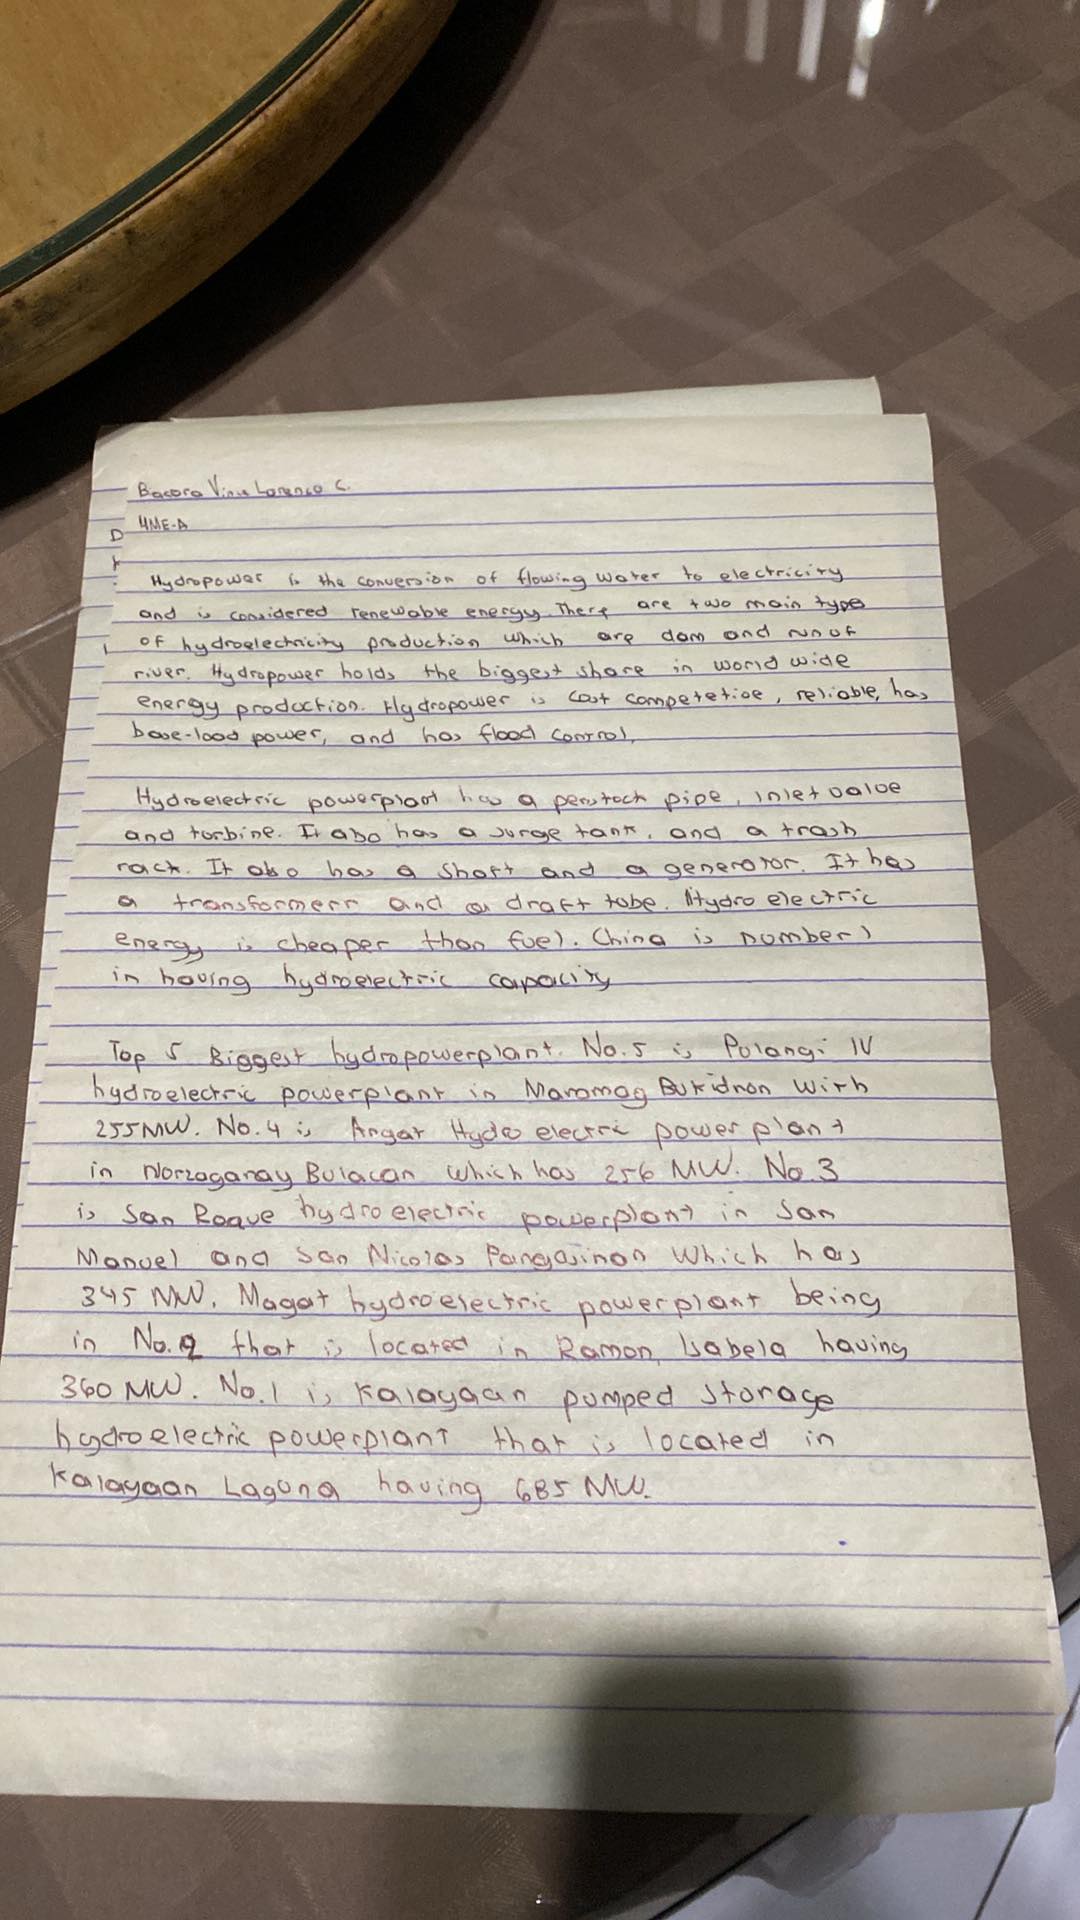 Bacora Vince Lorenzo C.
4ME-A
D
Hydropower is the conversion of flowing water to electricity
and is considered renewable energy. There are two main type
of hydroelectricity production which are dam and run of
river. Hydropower holds the biggest share in world wide
energy production. Hydropower is cost competetive, reliable, has
base-load power, and has flood control.
Hydroelectric powerplant has a penstock pipe, inlet valve
and turbine. It also has a surge tank, and a trash
rack. It also has a shaft and a generator. It has
a transformerr and a draft tube. Hydro electric
energy is cheaper than fuel. China is number 1
in having hydroelectric capacity
Top 5 Biggest hydropowerplant. No.5 is Pulangi IV
hydroelectric powerplant in Maramag Bukidnon with
255MW. No.4 is Angat Hydro electric power plant
in Norzagaray Bulacan which has 256 MW. No.3
is San Roque hydro electric powerplant in San
Manuel and San Nicolas Pangasinan which has
345 MW. Magat hydroelectric powerplant being
in No.2 that is located in Ramon, Isabela having
360 MW. No.1 is Kalayaan pumped storage
hydroelectric powerplant that is located in
Kalayaan Laguna having 685 MW.